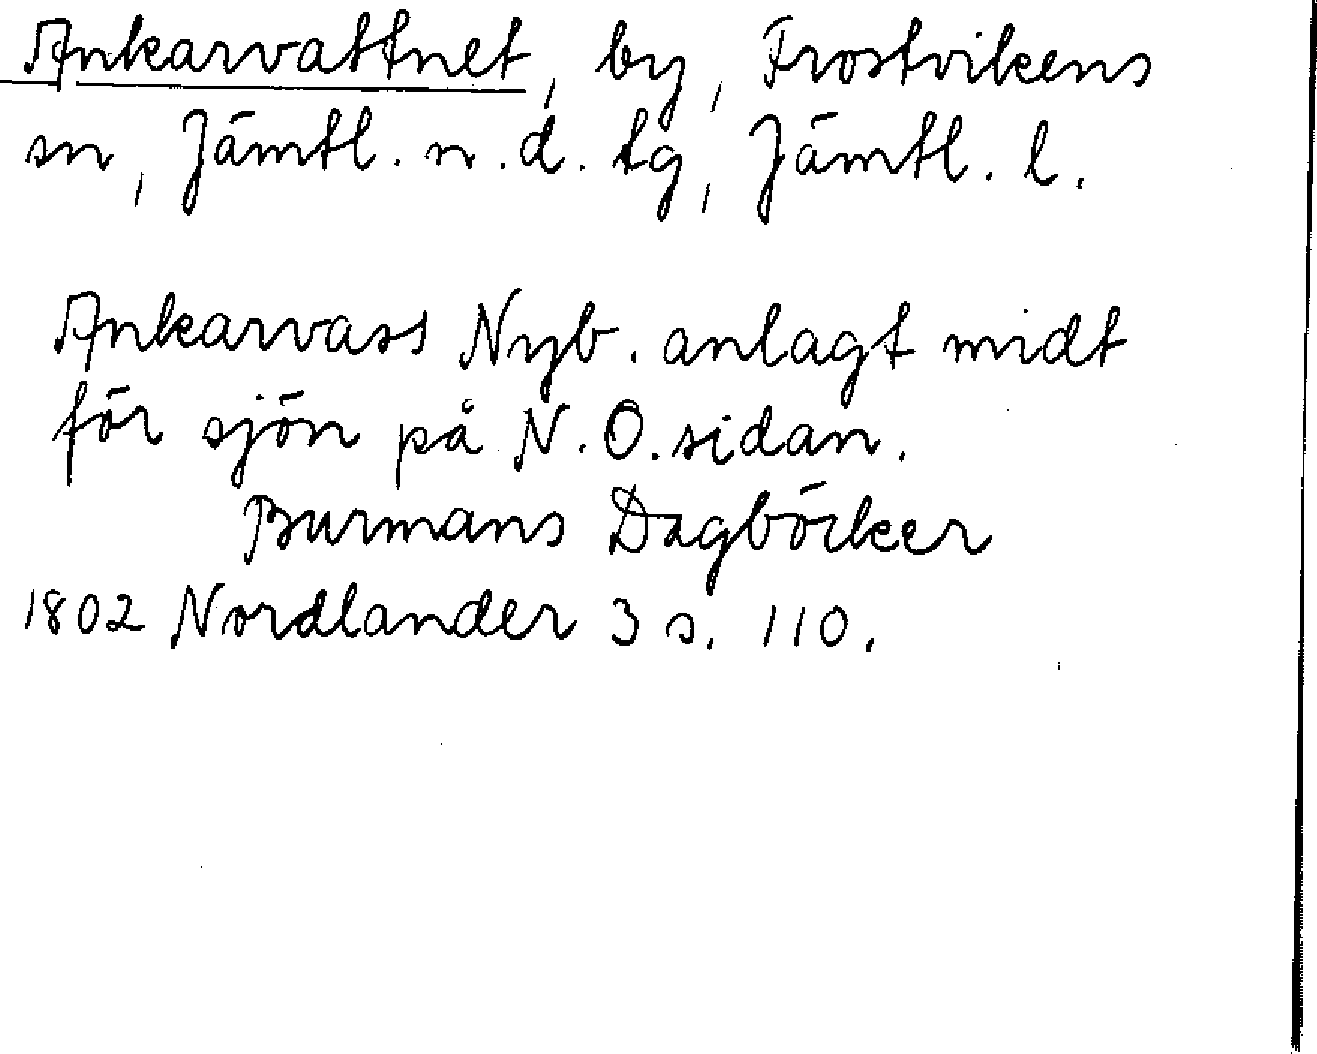 Ankarvattnet, by, Frostvikens
sn, Jämtl. n. d. tg, Jämtl. l.
Ankarvass Nyb. anlagt midt
för sjön på N. O. sidan.
Burmans Dagböcker
1802 Nordlander 3 s. 110.